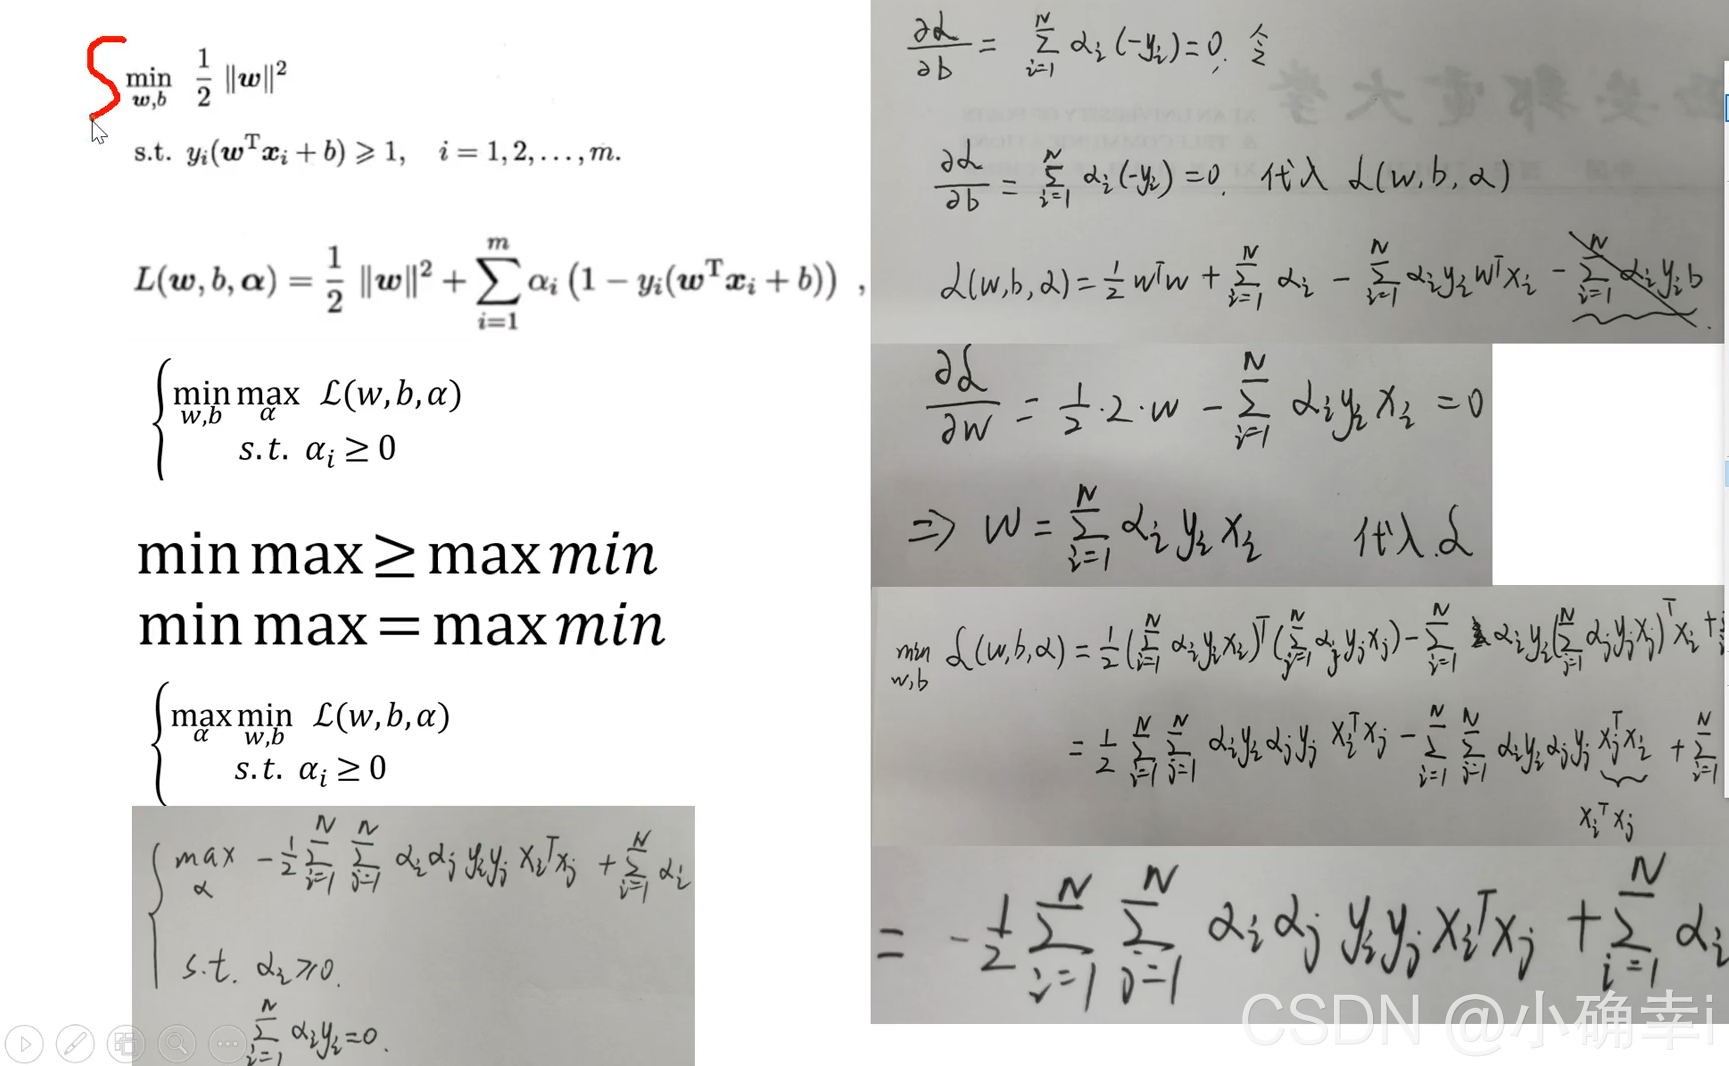 min_{w,b} 1/2 ‖w‖²
s.t. y_i(w^T x_i + b) ⩾ 1, i = 1, 2, ..., m.
L(w, b, α) = 1/2 ‖w‖² + ∑_{i=1}^{m} α_i (1 − y_i(w^T x_i + b)) ,
{ min_{w,b} max_α ℒ(w, b, α)
s.t. α_i ≥ 0
min max ≥ max min
min max = max min
{ max_α min_{w,b} ℒ(w, b, α)
s.t. α_i ≥ 0
{ max_α −1/2 ∑_{i=1}^{N} ∑_{j=1}^{N} α_i α_j y_i y_j x_i^T x_j + ∑_{i=1}^{N} α_i
s.t. α_i ≥ 0.
∑_{i=1}^{N} α_i y_i = 0.
∂ℒ/∂b = ∑_{i=1}^{N} α_i (−y_i) = 0, 令
∂ℒ/∂b = ∑_{i=1}^{N} α_i (−y_i) = 0. 代入 ℒ(w, b, α)
ℒ(w, b, α) = 1/2 w^T w + ∑_{i=1}^{N} α_i − ∑_{i=1}^{N} α_i y_i w^T x_i − ∑_{i=1}^{N} α_i y_i b .
∂ℒ/∂w = 1/2 · 2 · w − ∑_{i=1}^{N} α_i y_i x_i = 0
⇒ w = ∑_{i=1}^{N} α_i y_i x_i 代入 ℒ
min_{w,b} ℒ(w, b, α) = 1/2 (∑_{i=1}^{N} α_i y_i x_i)^T (∑_{j=1}^{N} α_j y_j x_j) − ∑_{i=1}^{N} α_i y_i (∑_{j=1}^{N} α_j y_j x_j)^T x_i +
= 1/2 ∑_{i=1}^{N} ∑_{j=1}^{N} α_i y_i α_j y_j x_i^T x_j − ∑_{i=1}^{N} ∑_{j=1}^{N} α_i y_i α_j y_j x_j^T x_i + ∑_{i=1}^{N}
x_i^T x_j
= −1/2 ∑_{i=1}^{N} ∑_{j=1}^{N} α_i α_j y_i y_j x_i^T x_j + ∑_{i=1}^{N} α_i
CSDN @小确幸i